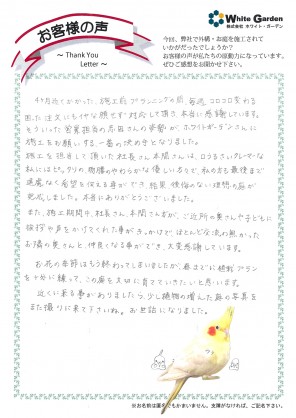 お客様の声
～ Thank You
Letter ～
White Garden
株式会社 ホワイト・ガーデン
今回、弊社で外構・お庭を施工されて
いかがだったでしょうか？
お客様の声が私たちの原動力になっています。
ぜひご感想をお聞かせ下さい。
4ヶ月近くかかった、施工前プランニングの間、毎週コロコロ変わる
困った注文にもイヤな顔せず対応して頂き、本当に感謝しています。
もういった営業担当の さんの姿勢が、ホワイトガーデンさんに
施工をお願いする一番の決め手となりました。
施工を担当して頂いた社長さん、本間さんは、口うるさい
私にはピッタリの、物腰のやわらかな優しい方々で、私の方も最後まで
遠慮なく希望を伝える事ができ、結果、後悔のない理想の庭が
完成しました。本当にありがとうございました。
また、施工期間中、社長さん、本間さんが、ご近所の奥さんや子どもに
挨拶や声をかけてくれた事がきっかけで、ほとんど交流の無かった
お隣の奥さんと、仲良くなる事ができ、大変感謝しています。
お花の季節はもう終わってしまいましたが、春までに植栽プラン
を十分に練って、この庭を大切に育てていきたいと思います。
近くに来る事がありましたら、少し植物の増えた庭の写真を
また撮りに来て下さいね。お世話になりました。
※お名前は匿名でもかまいません。支障がなければ、ご記名下さい。